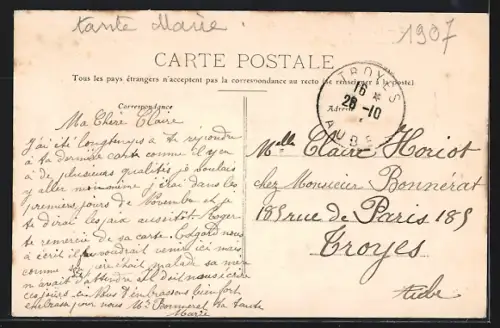 tante Marie.
1907
CARTE POSTALE
Tous les pays étrangers n'acceptent pas la correspondance au recto (se renseigner à la poste)
Correspondance
TROYES
16 *
26-10
AUBE
Ma Chère Claire
J'ai été longtemps à te répondre
à ta dernière carte comme il y en
a de plusieurs qualités je voulais
y aller moi même j'irai dans les
premiers jours de Novembre et je
te dirai les prix aussitôt Roger
te remercie de sa carte. Edgard nous
a écrit il voudrait venir ici mais
comme père était malade sa mère
m'avait d'attendre il doit nous écrire
ces jours-ci. Nous t'embrassons bien fort
embrasse pour nous Mme Bonnérat ta tante
Marie
Melle Claire Horiot
chez Monsieur Bonnérat
185 rue de Paris 185
Troyes
Aube